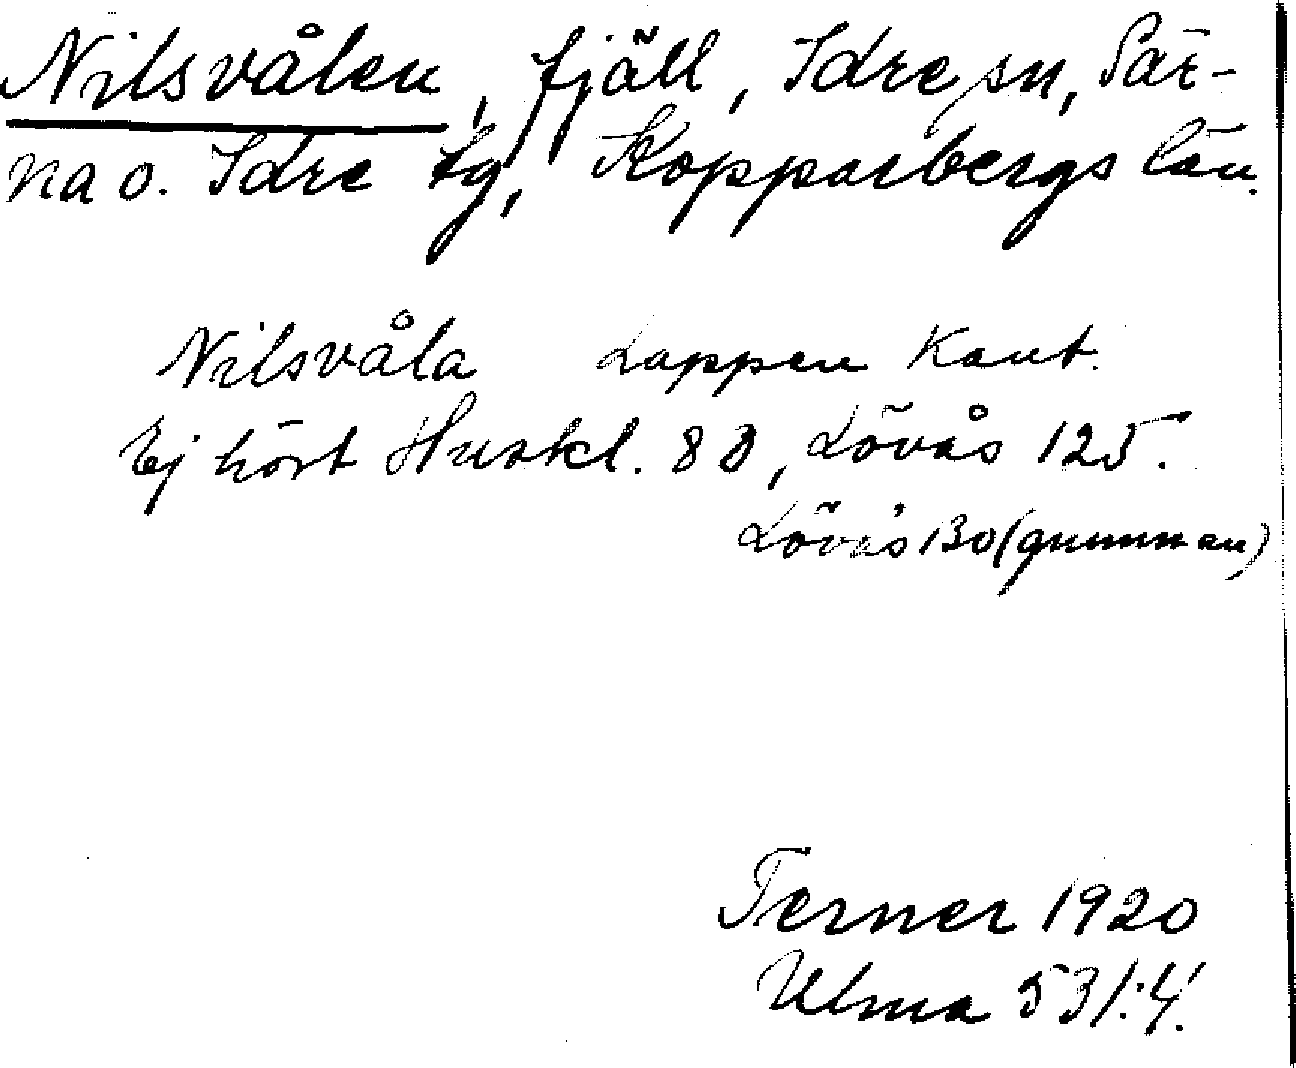 Nilsvålen, fjäll, Idre sn, Sär-
na o. Idre tg, Kopparbergs län.
Nilsvåla Lappen Kant.
Ej hört Huskl. 80, Lövås 125.
Lövås 130 (gumman)
Terner 1920
Ulma 531:4.